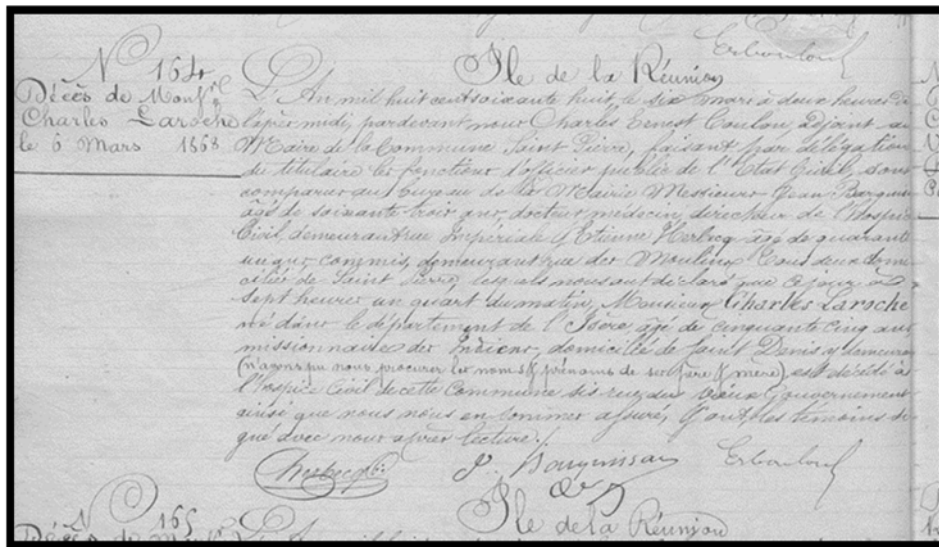 Ile de la Réunion
N° 164
Décès de Monsr
Charles Laroche
le 6 Mars 1868
L'An mil huit cent soixante huit, le six mars à deux heures de
l'après midi, pardevant nous Charles Ernest Coulon, adjoint au
Maire de la Commune Saint Pierre, faisant par délégation
du titulaire les fonctions d'officier public de l'Etat Civil, sont
comparus au bureau de la Mairie Messieurs Jean
âgé de soixante trois ans, docteur médecin, directeur de l'Hospice
Civil, demeurant rue Impériale & Etienne Herbecq âgé de quarante
un ans commis, demeurant rue des Moulins Tous deux domi
ciliés de Saint Pierre, lesquels nous ont déclaré que ce jour à
sept heures un quart du matin, Monsieur Charles Laroche
né dans le département de l'Isère âgé de cinquante cinq ans
missionnaire des Indiens, domicilié de Saint Denis y demeurant
(n'ayons pu nous procurer les noms & prénoms de ses père & mère), est décédé à
l'hospice Civil de cette Commune sis rue du vieux Gouvernement
ainsi que nous nous en sommes assuré, & ont les témoins si
gné avec nous après lecture./.
Herbecq
N° 165
Ile de la Réunion